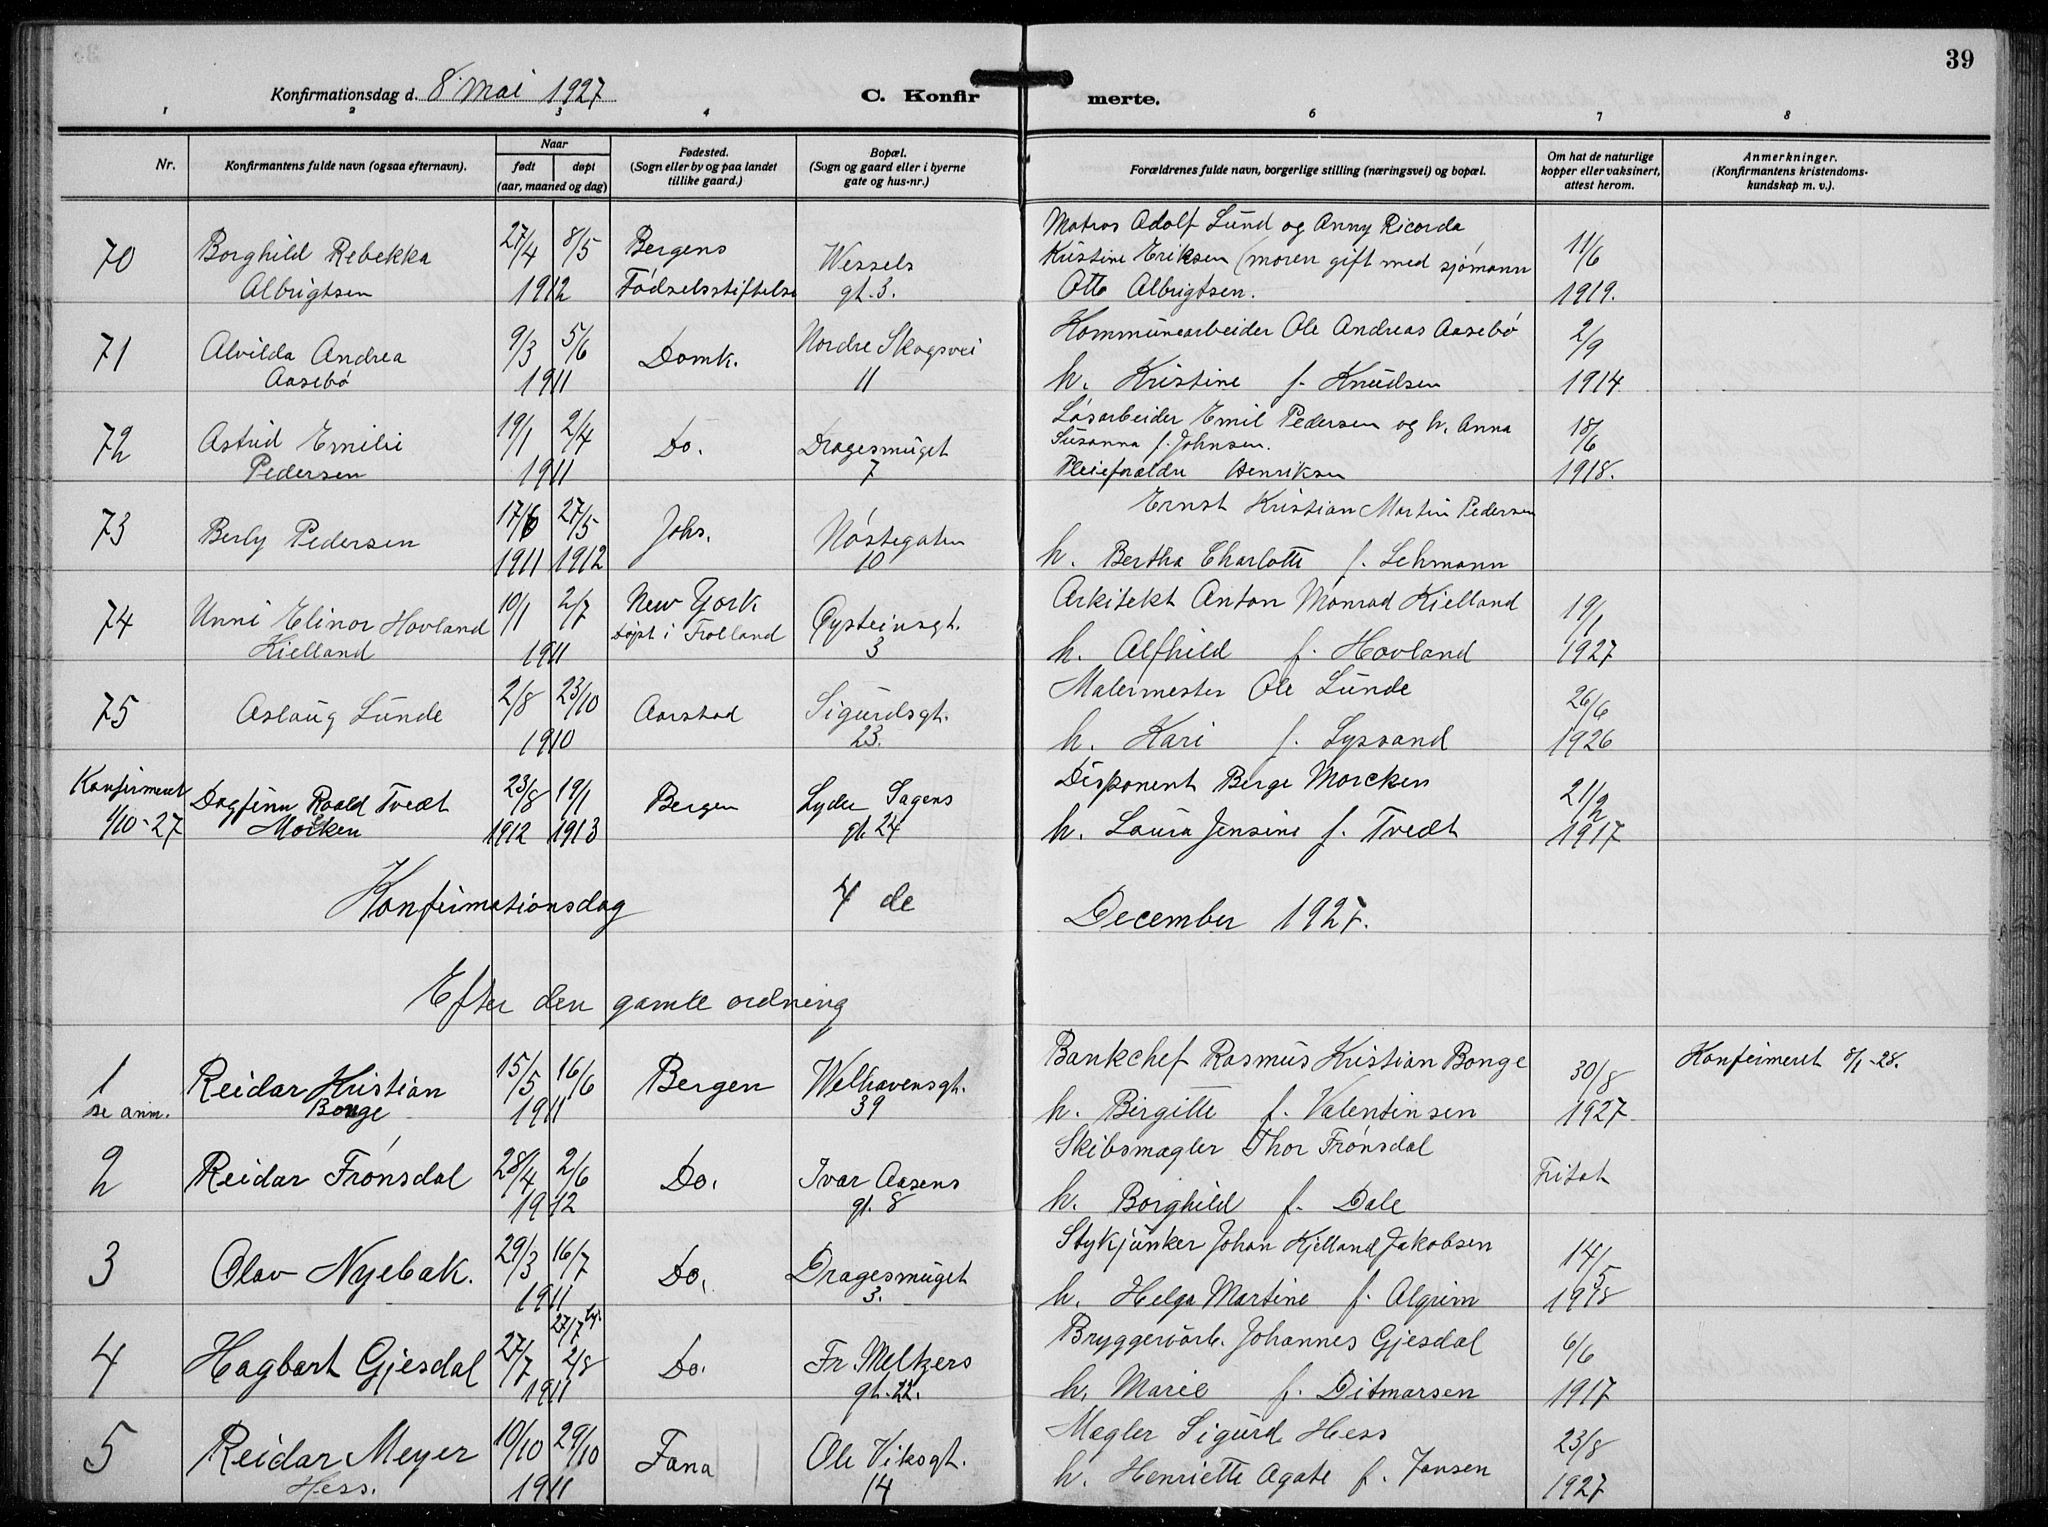 39
Konfirmationsdag d. 8 Mai 1927
C. Konfir merte.
1 2 3 4 5 6 7 8
Nr.
Konfirmantens fulde navn (ogsaa efternavn).
Naar
født døpt
(aar, maaned og dag)
Fødested.
(Sogn eller by og paa landet
tillike gaard.)
Bopæl.
(Sogn og gaard eller i byerne
gate og hus-nr.)
Forældrenes fulde navn, borgerlige stilling (næringsvei) og bopæl.
Om hat de naturlige
kopper eller vaksinert,
attest herom.
Anmerkninger.
(Konfirmantens kristendoms-
kundskap m. v.).
Matros Adolf Lund og Anny Ricorda
70 Borghild Rebekka 27/4 8/5 Bergens Wessels Kristine Eriksen (moren gift med sjømann 11/6
Albrigtsen 1912 Fødselsstiftelse gt. 3. Otto Albrigtsen. 1919.
71 Alvilda Andrea 9/3 5/6 Domk. Nordre Skogsvei Kommunearbeider Ole Andreas Aasebø 2/9
Aasebø 1911 11 h. Kristine f. Knudsen 1914.
72 Astrid Emilie 19/1 2/4 Do. Dragesmuget Løsarbeider Emil Pedersen og h. Anna 18/6
Susanna f. Johnsen.
Pedersen 1911 7 Pleieforældre Henriksen 1918.
73 Berly Pedersen 17/6 27/5 Johs. Nøstegaten Ernst Kristian Martin Pedersen
1911 1912 10 h. Bertha Charlotte f. Lehmann
74 Unni Elinor Hovland 10/1 2/7 New York Øysteinsgt. Arkitekt Anton Monrad Kielland 19/1
Kielland 1911 døpt i Frolland 3 h. Alfhild f. Hovland 1927
75 Aslaug Lunde 2/8 23/10 Aarstad Sigurdsgt. Malermester Ole Lunde 26/6
1910 23. h. Kari f. Lyssand 1926
Konfirmeret Dagfinn Roald Tvedt 23/8 19/1 Bergen Lyder Sagens Disponent Berge Morcken 21/2
1/10-27 Morken 1912 1913 gt. 24 h. Laura Jensine f. Tvedt 1917
Konfirmationsdag 4 de December 1927.
Efter den gamle ordning
1 Reidar Kristian 15/5 16/6 Bergen Welhavensgt. Bankchef Rasmus Kristian Bonge 30/8 Konfirmeret 8/1-28.
se anm. Bonge 1911 39 h. Birgitte f. Valentinsen 1927
2 Reidar Frønsdal 28/4 2/6 Do. Ivar Aasens Skibsmægler Thor Frønsdal Fritat
1912 gt. 8 h. Borghild f. Dale
3 Olav Nyebak. 29/3 16/7 Do. Dragesmuget Stykjunker Johan Kjelland Jakobsen 14/5
1911 3. h. Helga Martine f. Algrim 1918
27/7
4 Hagbart Gjesdal 27/7 2/8 Do. Fr Meltzers Bryggeriarb. Johannes Gjesdal 6/6
1911 gt. 22. h. Marie f. Ditmarsen 1917
5 Reidar Meyer 10/10 29/10 Fana Ole Viksgt. Mægler Sigurd Hess 23/8
Hess. 1911 14 h. Henriette Agate f. Jansen 1927